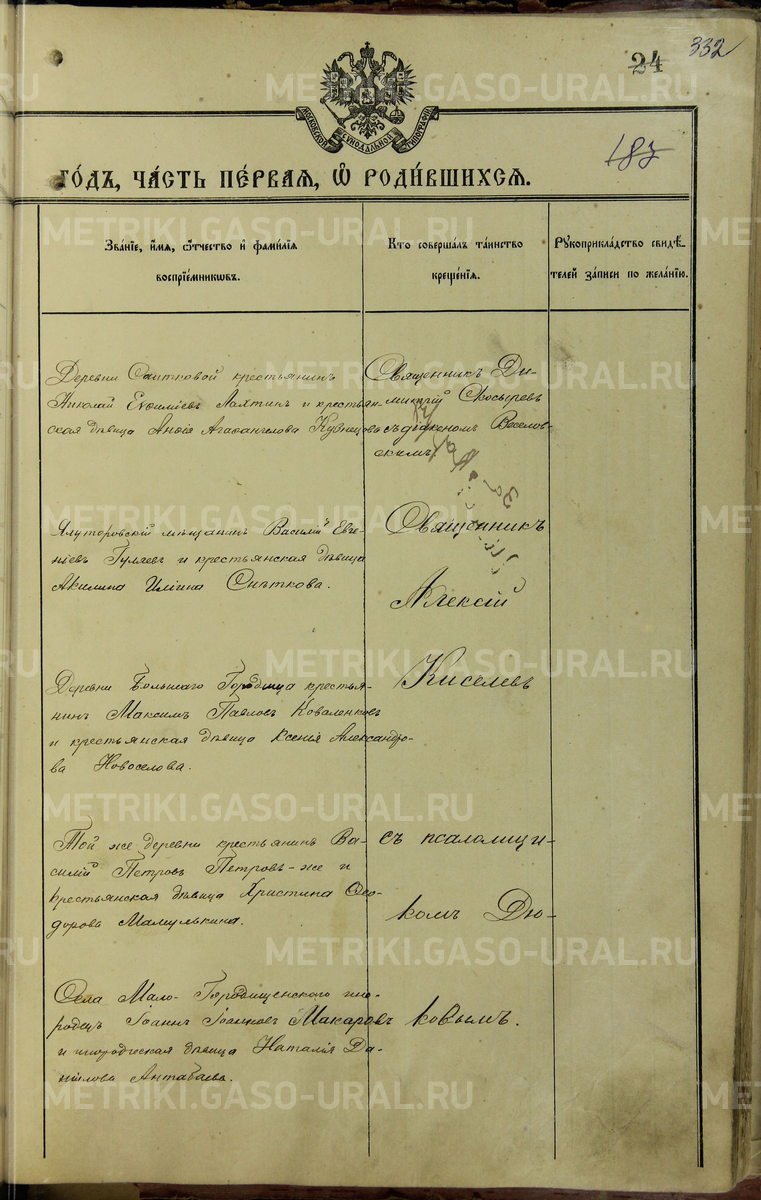 332
24
МОСКОВСКОЙ СѴНОДАЛЬНОЙ ТИПОГРАФІИ
187
ГО́ДЪ, ЧА́СТЬ ПЕ́РВАЯ, Ѽ РОДИ́ВШИХСЯ.
Зва́нїе, и́мя, ѻ́тчество и҆ фами́лїя
воспрїе́мниковъ.
Кто соверша́лъ та́инство
креще́нїя.
Рꙋкоприкла́дство свидѣ́-
телей за́писи по жела́нїю.
Деревни Сатковой крестьянинъ
Николай Евѳиміевъ Лаптинъ и крестьян-
ская дѣвица Анѳія Агаѳангелова Кузнецова
Священникъ Ди-
митрій Скосыревъ
съ діакономъ Веселов-
скимъ.
Ялуторовскій мѣщанинъ Василій Евге-
ніевъ Гуляевъ и крестьянская дѣвица
Акилина Иліина Сыткова.
Священникъ
Алексій
Киселевъ
Деревни Большаго Городища крестья-
нинъ Максимъ Павловъ Коваленковъ
и крестьянская дѣвица Ксенія Александро-
ва Новоселова.
Той же деревни крестьянинъ Ва-
силій Петровъ Петровъ-же и
крестьянская дѣвица Христина Ѳео-
дорова Мамулькина.
съ псаломщи-
комъ Дю-
Села Мало-Городищенского ино-
родецъ Іоаннъ Іоанновъ Макаровъ
и инородческая дѣвица Наталія Да-
ніилова Антабаева.
ковымъ.
METRIKI.GASO-URAL.RU